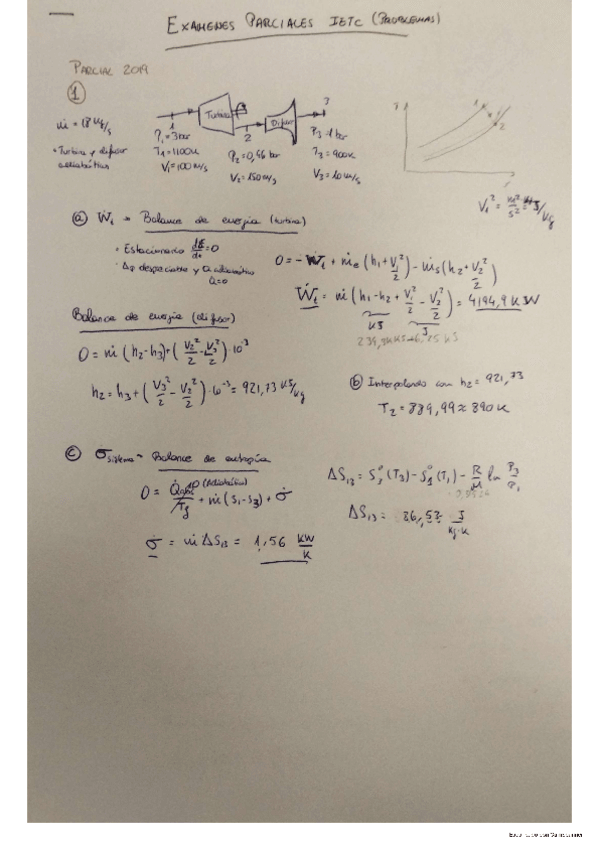 EXAMENES PARCIALES IETC (PROBLEMAS)
PARCIAL 2019
①
ṁ = 18 kg/s
• Turbina y difusor adiabáticos
Turbina
Difusor
1
2
3
P₁ = 3 bar
T₁ = 1100K
V₁ = 100 m/s
P₂ = 0,96 bar
V₂ = 150 m/s
P₃ = 1 bar
T₃ = 900K
V₃ = 10 m/s
ⓐ Balance de energía (turbina)
• Estacionario dE/dt = 0
• Δφ despreciable y Q adiabático
Q̇=0
0 = -Ẇt + ṁe (h₁ + V₁²/2) - ṁs (h₂ + V₂²/2)
Ẇt = ṁ (h₁ - h₂ + V₁²/2 - V₂²/2) = 4194,9 KW
KJ
J
Balance de energía (difusor)
0 = ṁ (h₂-h₃) + (V₂²/2 - V₃²/2) 10⁻³
h₂ = h₃ + (V₃²/2 - V₂²/2) · 10⁻³ = 921,73 KJ/kg
ⓑ Interpolando con h₂ = 921,73
T₂ = 889,99 ≈ 890 K
ⓒ σ sistema → Balance de entropía
(Adiabático)
+ ṁ (S₁-S₃) + σ̇
ΔS₁₃ = S₁°(T₃) - S₁°(T₁) - R/M ln P₃/P₁
ΔS₁₃ = 86,53 J/kg·K
σ̇ = ṁ ΔS₁₃ = 1,56 KW/K